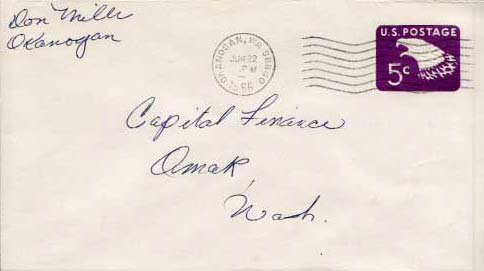 Don Mills
Okanogan
OKANOGAN, WA 98840
JUN 22
PM
1966
U.S. POSTAGE
5c
Capital Finance
Omak,
Wash.